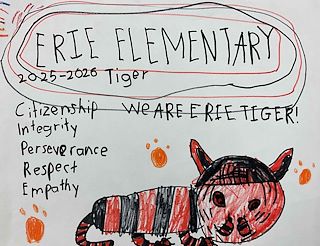 ERIE ELEMENTARY
2025-2026 Tiger
Citizenship WE ARE ERIE TIGER!
Integrity
Perseverance
Respect
Empathy